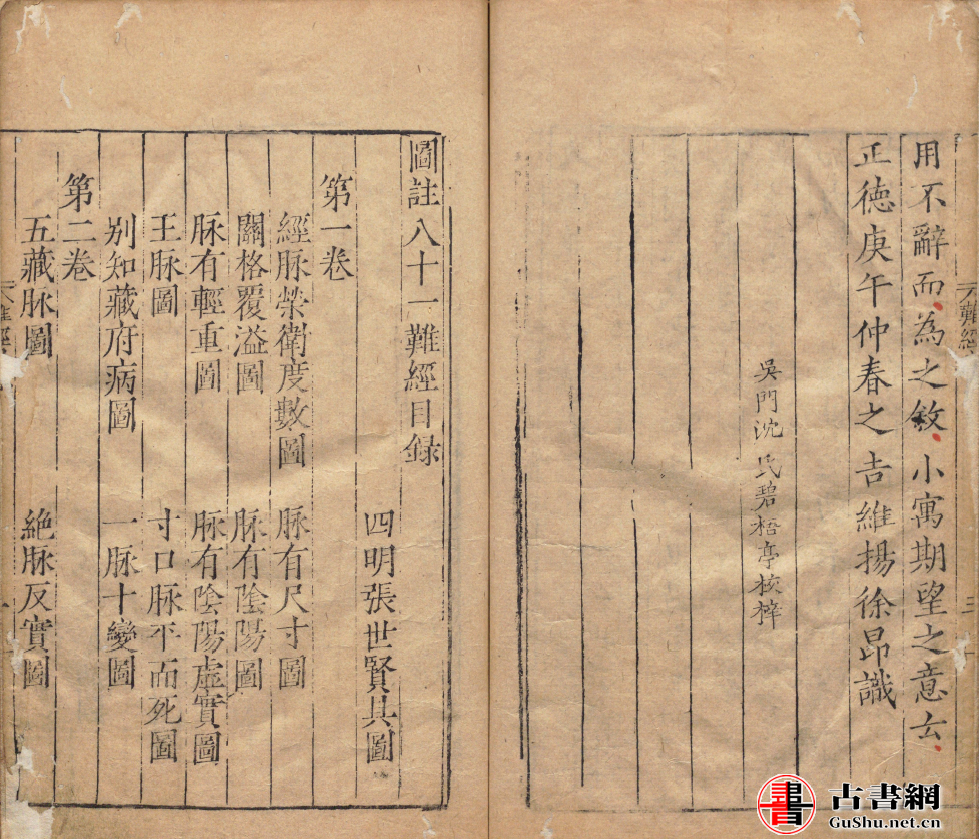 用不辭而為之敘小寓期望之意云
正徳庚午仲春之吉維揚徐昂識
吳門沈氏碧梧亭校梓
圖註八十一難經目錄
四明張世賢具圖
第一卷
經脉榮衛度數圖
脉有尺寸圖
關格覆溢圖
脉有陰陽圖
脉有輕重圖
脉有陰陽虛實圖
王脉圖
寸口脉平而死圖
别知藏府病圖
一脉十變圖
第二卷
五藏脉圖
絶脉反實圖
難經
書 古書網
GuShu.net.cn